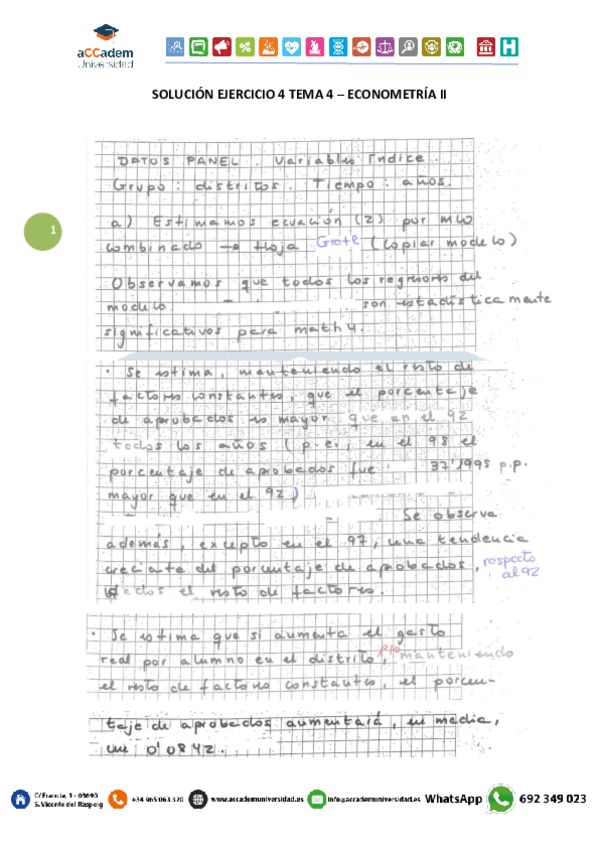 aCCadem
Universidad
SOLUCIÓN EJERCICIO 4 TEMA 4 – ECONOMETRÍA II
DATOS PANEL. Variables Índice.
Grupo: distritos. Tiempo: años.
1
a) Estimamos ecuación (2) por MCO
combinado → Hoja Grete (Copiar modelo)
Observamos que todos los regresores del
modelo son estadísticamente
significativos para math4.
· Se estima, manteniendo el resto de
factores constantes, que el porcentaje
de aprobados es mayor que en el 92
todos los años (p.e., en el 98 el
porcentaje de aprobados fue 37'1995 p.p.
mayor que en el 92)
Se observa
además, excepto en el 97, una tendencia
creciente del porcentaje de aprobados, respecto
al 92
dados el resto de factores.
· Se estima que si aumenta el gasto
real por alumno en el distrito, 1% manteniendo
el resto de factores constantes, el porcen-
taje de aprobados aumentará, en media,
un 0'0842.
C/ Francia, 1 - 03690
S. Vicente del Raspeig
+34 965 063 320
www.accademuniversidad.es
info@accademuniversidad.es
WhatsApp
692 349 023